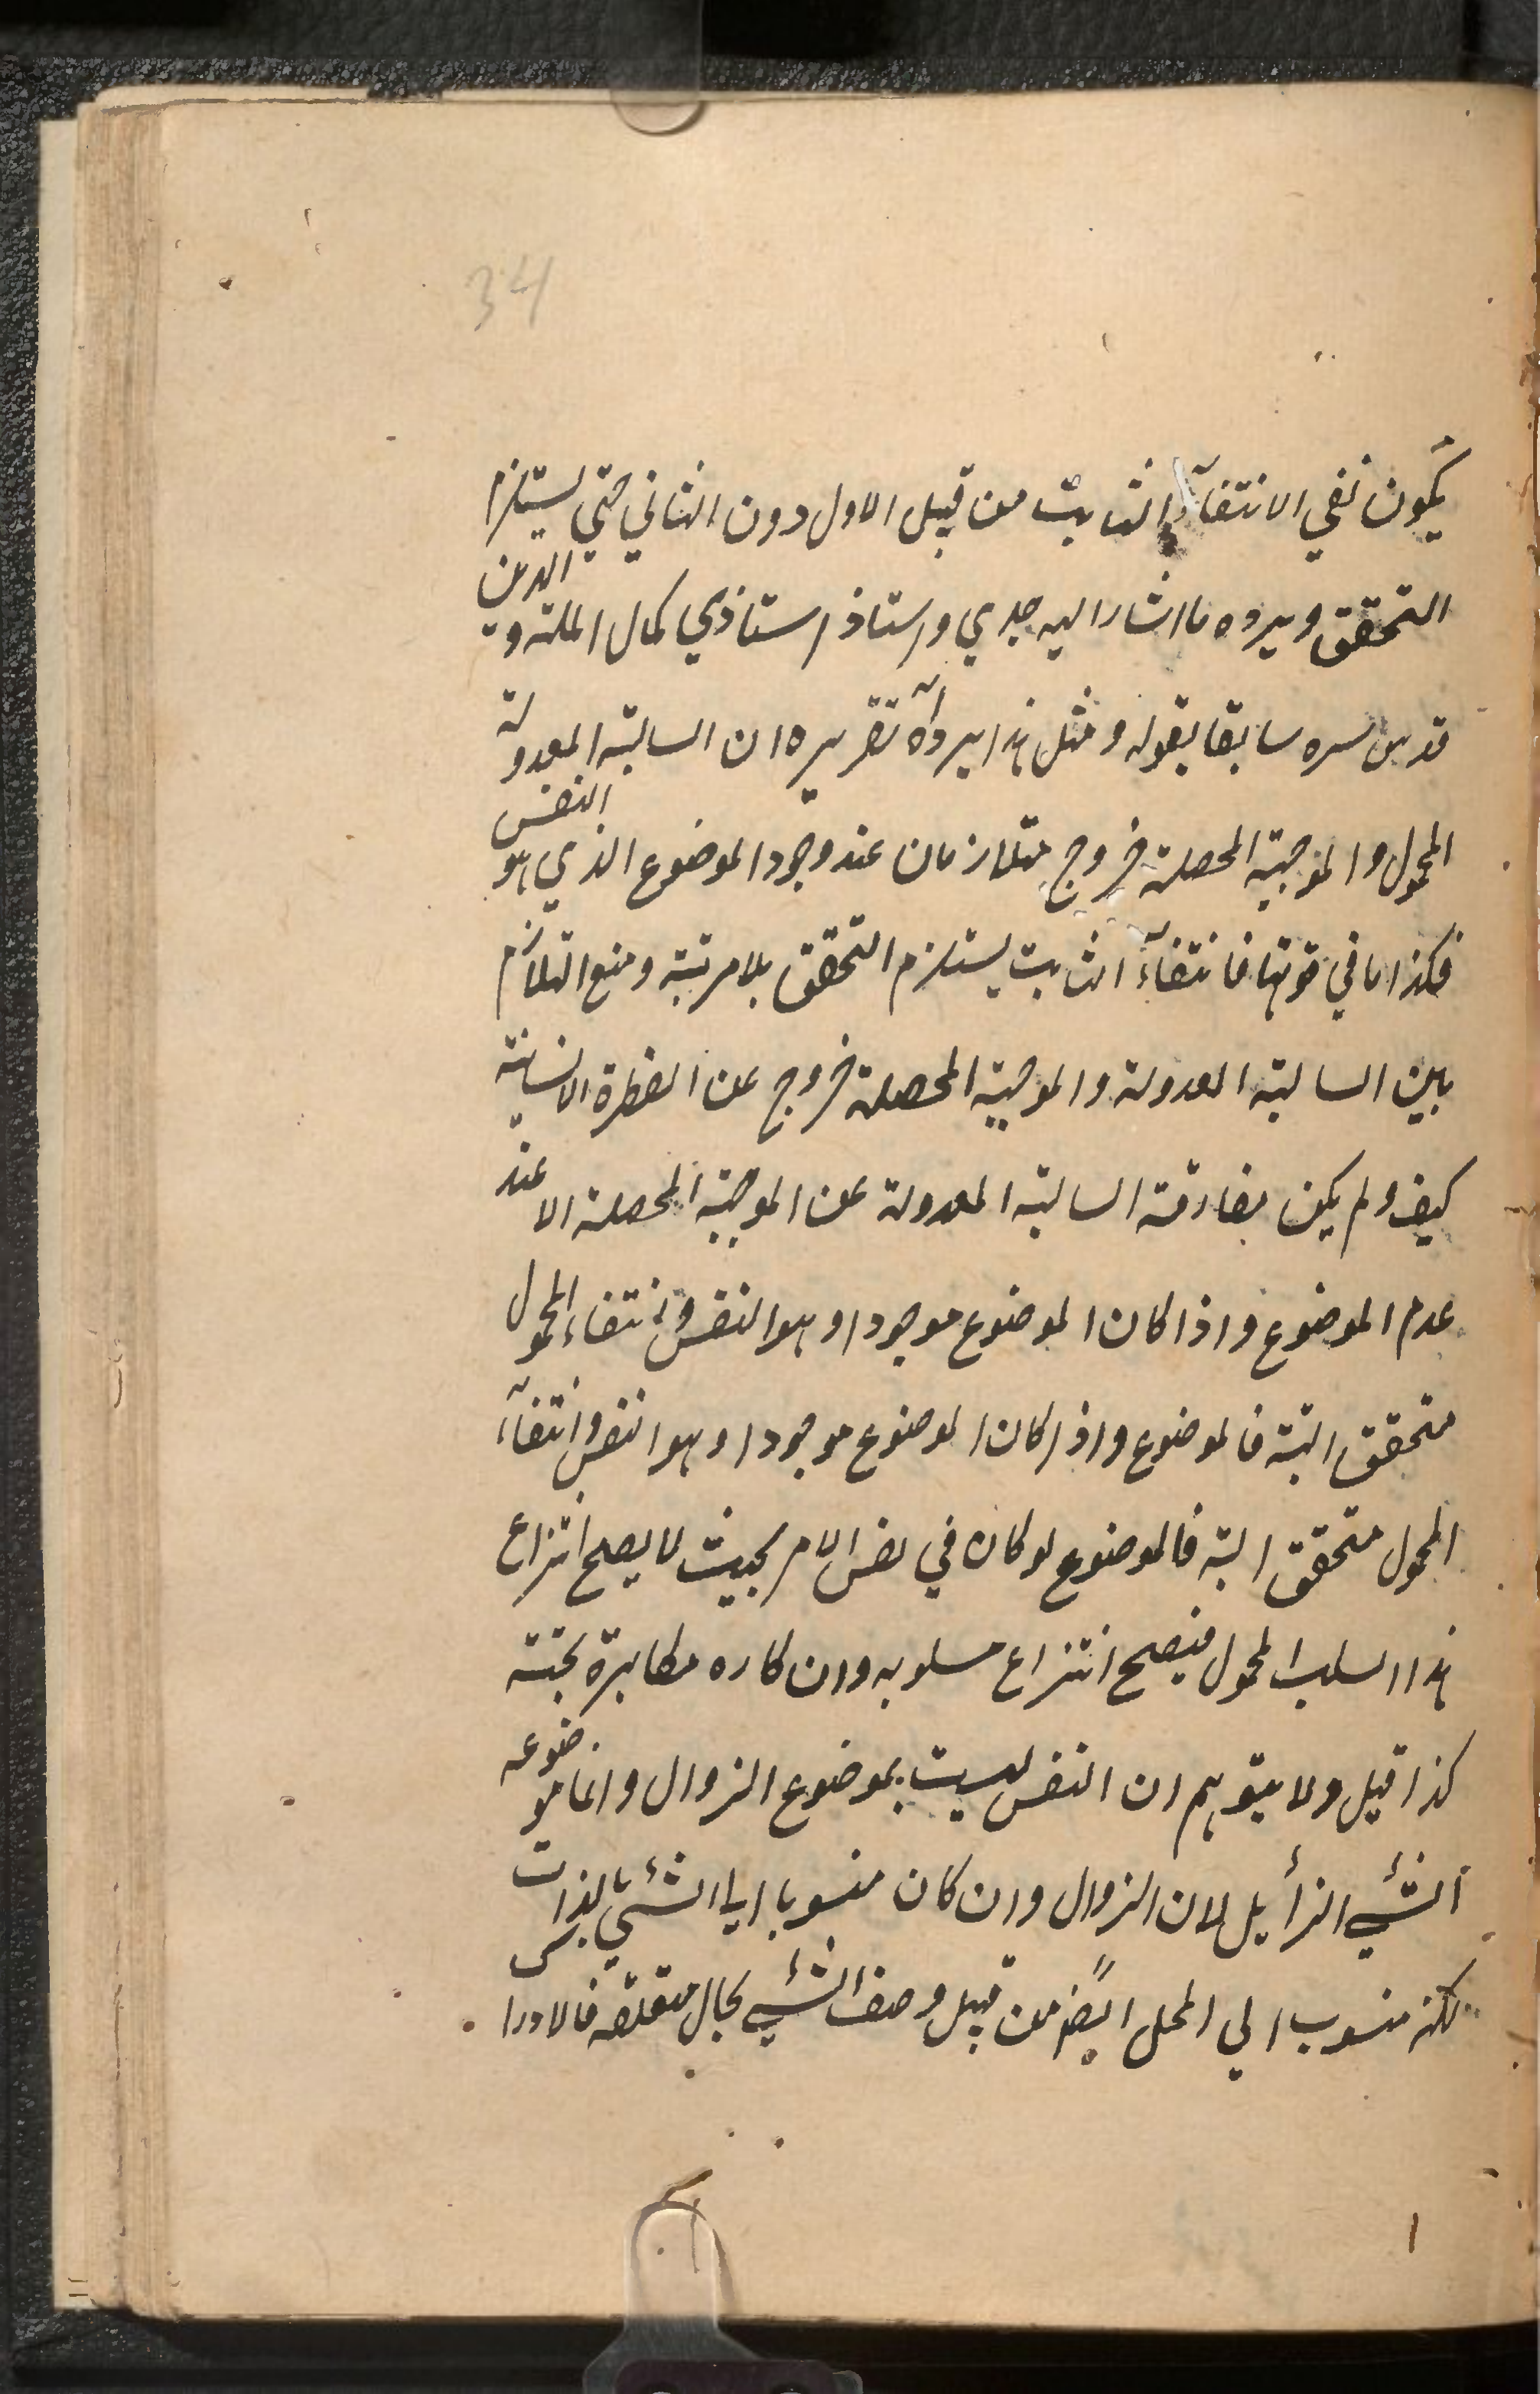 34
يكون نفي الانتفاء الثابت من قبيل الاول دون الثاني حتي يستلزم
التحقق ويرده ما اشار اليه جدي واستاذ استاذي كمال الملة و الدين
قدس سره سابقا بقوله ومثل هذا يرد آه تقريره ان السالبة المعدولة
المحمول والموجبة المحصلة خروج متلازمان عند وجود الموضوع الذي هو النفس
فكذا ما في قوتها فانتفاء الثابت يستلزم التحقق بلا مرتبة ومنع التلازم
بين السالبة المعدولة والموجبة المحصلة خروج عن الفطرة الانسانية
كيف ولم يكن مفارقة السالبة المعدولة عن الموجبة المحصلة الا عند
عدم الموضوع واذا كان الموضوع موجودا وهو النفس وانتفاء المحمول
متحقق البتة فالموضوع واذا كان الموضوع موجودا وهو النفس وانتفاء
المحمول متحقق البتة فالموضوع لو كان في نفس الامر بحيث لا يصح انتزاع
هذا السلب المحمول فيصح انتزاع مسلوبه وان كاره مكابرة بحتة
كذا قيل ولا يتوهم ان النفس ليست بموضوع الزوال وانما موضوعه
الشئي الزأيل لان الزوال وان كان منسوبا الي الشئي بالذات
لكنه منسوب الي المحل ايضً من قبيل وصف الشئي بحال متعلقه فالادراك